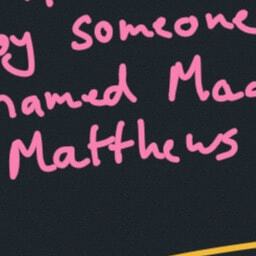 by someone
named Mad
Matthews